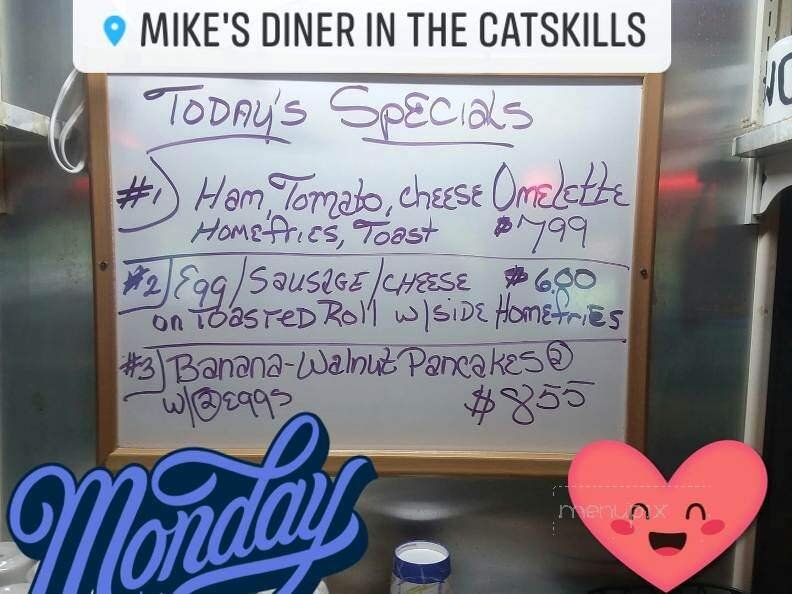 MIKE'S DINER IN THE CATSKILLS
TODAY'S SPECIALS
#1) Ham, Tomato, cheese Omelette
Homefries, Toast $799
#2) Egg/Sausage/cheese $6.00
on Toasted Roll w/side Homefries
#3) Banana-Walnut Pancakes (2)
w/(2) eggs $855
Monday
menupix